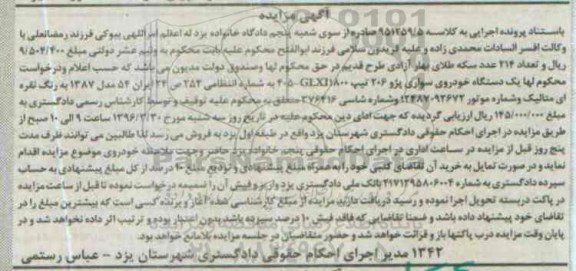 آگهی مزایده
باستناد پرونده اجرایی به کلاسه ۹۵۱۲۵۹/۵ صادره از سوی شعبه پنجم دادگاه خانواده یزد له اعظم امراللهی بیوکی فرزند رمضانعلی با
وکالت افسر السادات محمدی زاده و علیه فریدون سلامی فرزند ابوالفتح محکوم علیه بابت محکوم به ونیم عشر دولتی مبلغ ۹/۵۰۴/۴۰۰
ریال و تعداد ۲۱۴ عدد سکه طلای بهار آزادی طرح قدیم در حق محکوم لها وصندوق دولت مدیون می باشد که حسب اعلام ودرخواست
محکوم لها یک دستگاه خودروی سواری پژو ۲۰۶ تیپ GLXI)۸۰۰-۴۰۵ به شماره انتظامی ۲۵۲ ص ۲۴ ایران ۵۴ مدل ۱۳۸۷ به رنگ نقره
ای متالیک وشماره موتور ۱۲۴۸۷۰۹۲۶۷۲ وشماره شاسی ۳۷۶۴۱۶ متعلق به محکوم علیه توقیف و توسط کارشناس رسمی دادگستری به
مبلغ ۱۴۵/۰۰۰/۰۰۰ ریال ارزیابی گردیده که جهت ادای دین محکوم علیه در تاریخ روز سه شنبه مورخ ۱۳۹۶/۳/۳۰ ساعت ۹ الی ۱۰ صبح از
طریق مزایده در اجرای احکام حقوقی دادگستری شهرستان یزد واقع در طبقه اول یزد به فروش می رسد لذا طالبین می توانند ظرف مدت
پنج روز قبل از مزایده در ساعت اداری در اجرای احکام حقوقی پنجم خانواده یزد حاضر وجهت ملاحظه خودروی موضوع مزایده اقدام
نماید و در صورت تمایل به خرید آن تقاضای کتبی خود را به همراه مبلغ پیشنهادی و تودیع مبلغ ۱۰ درصد از کل مبلغ پیشنهادی به حساب
سپرده دادگستری به شماره ۲۱۷۱۲۹۵۸۰۶۰۰۴ بانک ملی دادگستری یزد واریز و فیش آن را ضمیمه درخواست نموده تا قبل از ساعت مزایده
در پاکت دربسته تحویل اجرا نموده و رسید دریافت دارند مزایده از مبلغ کارشناسی شده آغاز و برنده کسی است که بیشترین مبلغ را در
تقاضای خود پیشنهاد داده باشد و ضمنا تقاضایی که فاقد فیش ۱۰ درصد سپرده باشد بدون اعتبار بوده و ترتیب اثر داده نخواهد شد و در
پایان وقت مزایده درب پاکتها باز و قرائت خواهد شد و حضور متقاضیان در جلسه مزایده بلامانع خواهد بود.
۱۳۴۲ مدیر اجرای احکام حقوقی دادگستری شهرستان یزد - عباس رستمی